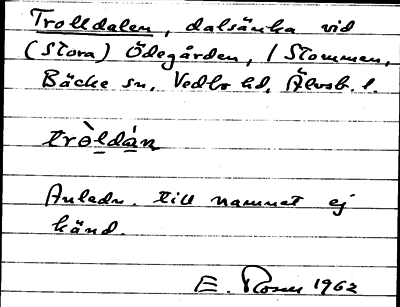 Trolldalen, dalsänka vid
(Stora) Ödegården, 1 Stommen,
Bäcke sn, Vedbo hd, Älvsb. l.
tròldán
Anledn. till namnet ej
känd.
E. Rosen 1962